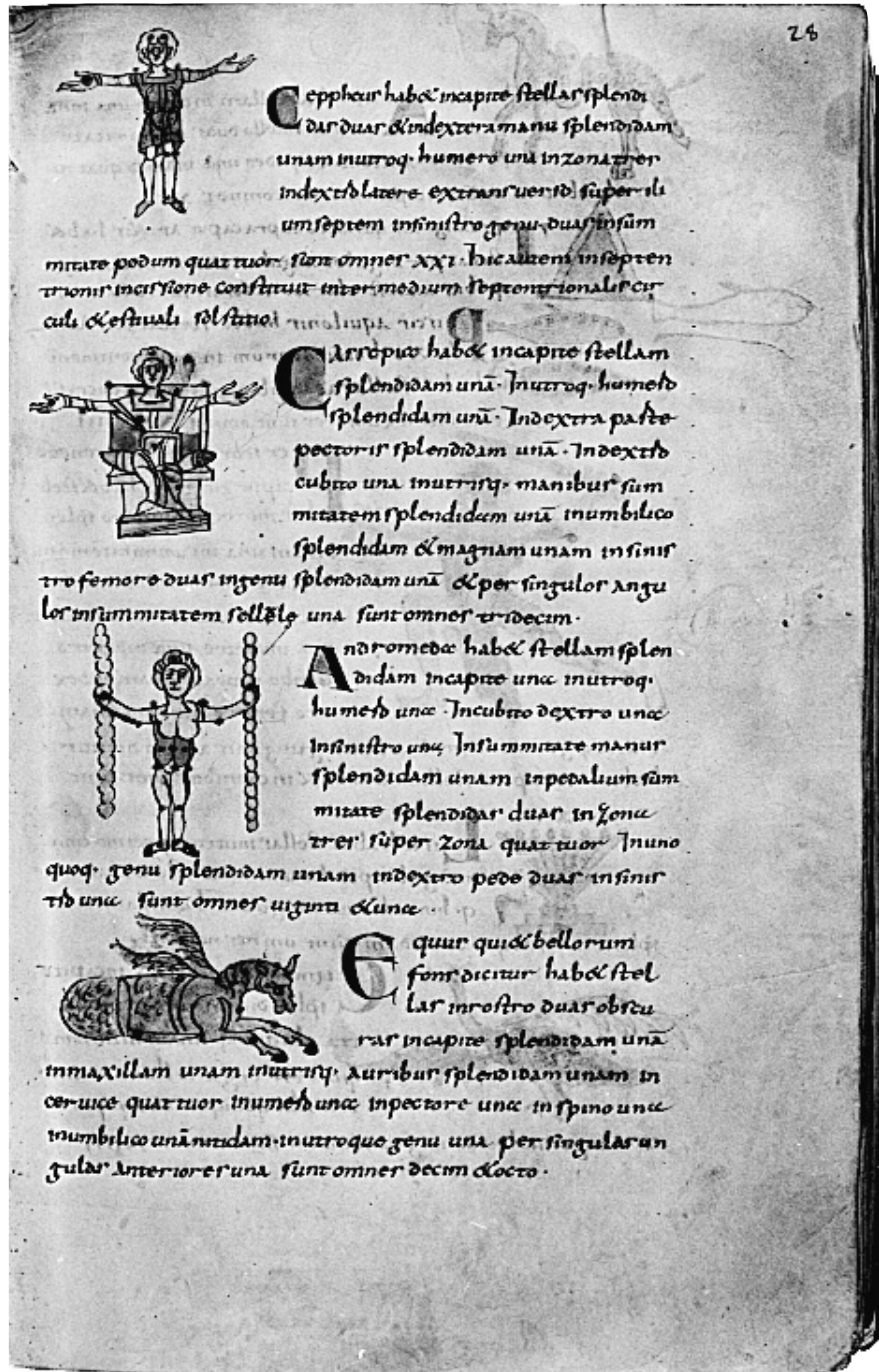 28
Ceppheus hab& incapite stellas splendi
das duas & indextera manu splendidam
unam inutroq· humero una inzona tres
indextro latere extransuerso super ili
um septem insinistro genu duas insum
mitate podum quattuor sunt omnes xxi· hic autem insepten
trionis incissione constituit inter medium septentrionalis cir
culi & estiuali solstitio
Carrepico hab& incapite stellam
splendidam unā· Inutroq· humero
splendidam unā· Indextra parte
pectoris splendidam unā· Indextro
cubito una inutrisq· manibus sum
mitatem splendidam unā inumbilico
splendidam & magnam unam insinis
tro femore duas ingenu splendidam unā & per singulos angu
los insummitatem una sunt omnes tridecim·
Andromeda hab& stellam splen
didam incapite una inutroq·
humero una Incubito dextro una
insinistro una Insummitate manus
splendidam unam inpedalium sum
mitate splendidas duas in zona
tres super zona quattuor Inuno
quoq· genu splendidam unam indextro pede duas insinis
tro una sunt omnes uiginti & una·
Equus qui & bellorum
fons dicitur hab& stel
las inrostro duas obscu
ras incapite splendidam unā
inmaxillam unam inutrisq· auribus splendidam unam in
ceruice quattuor inumero una inpectore una in spino una
inumbilico unā nitidam· inutroque genu una per singulas un
gulas anteriores una sunt omnes decim & octo·